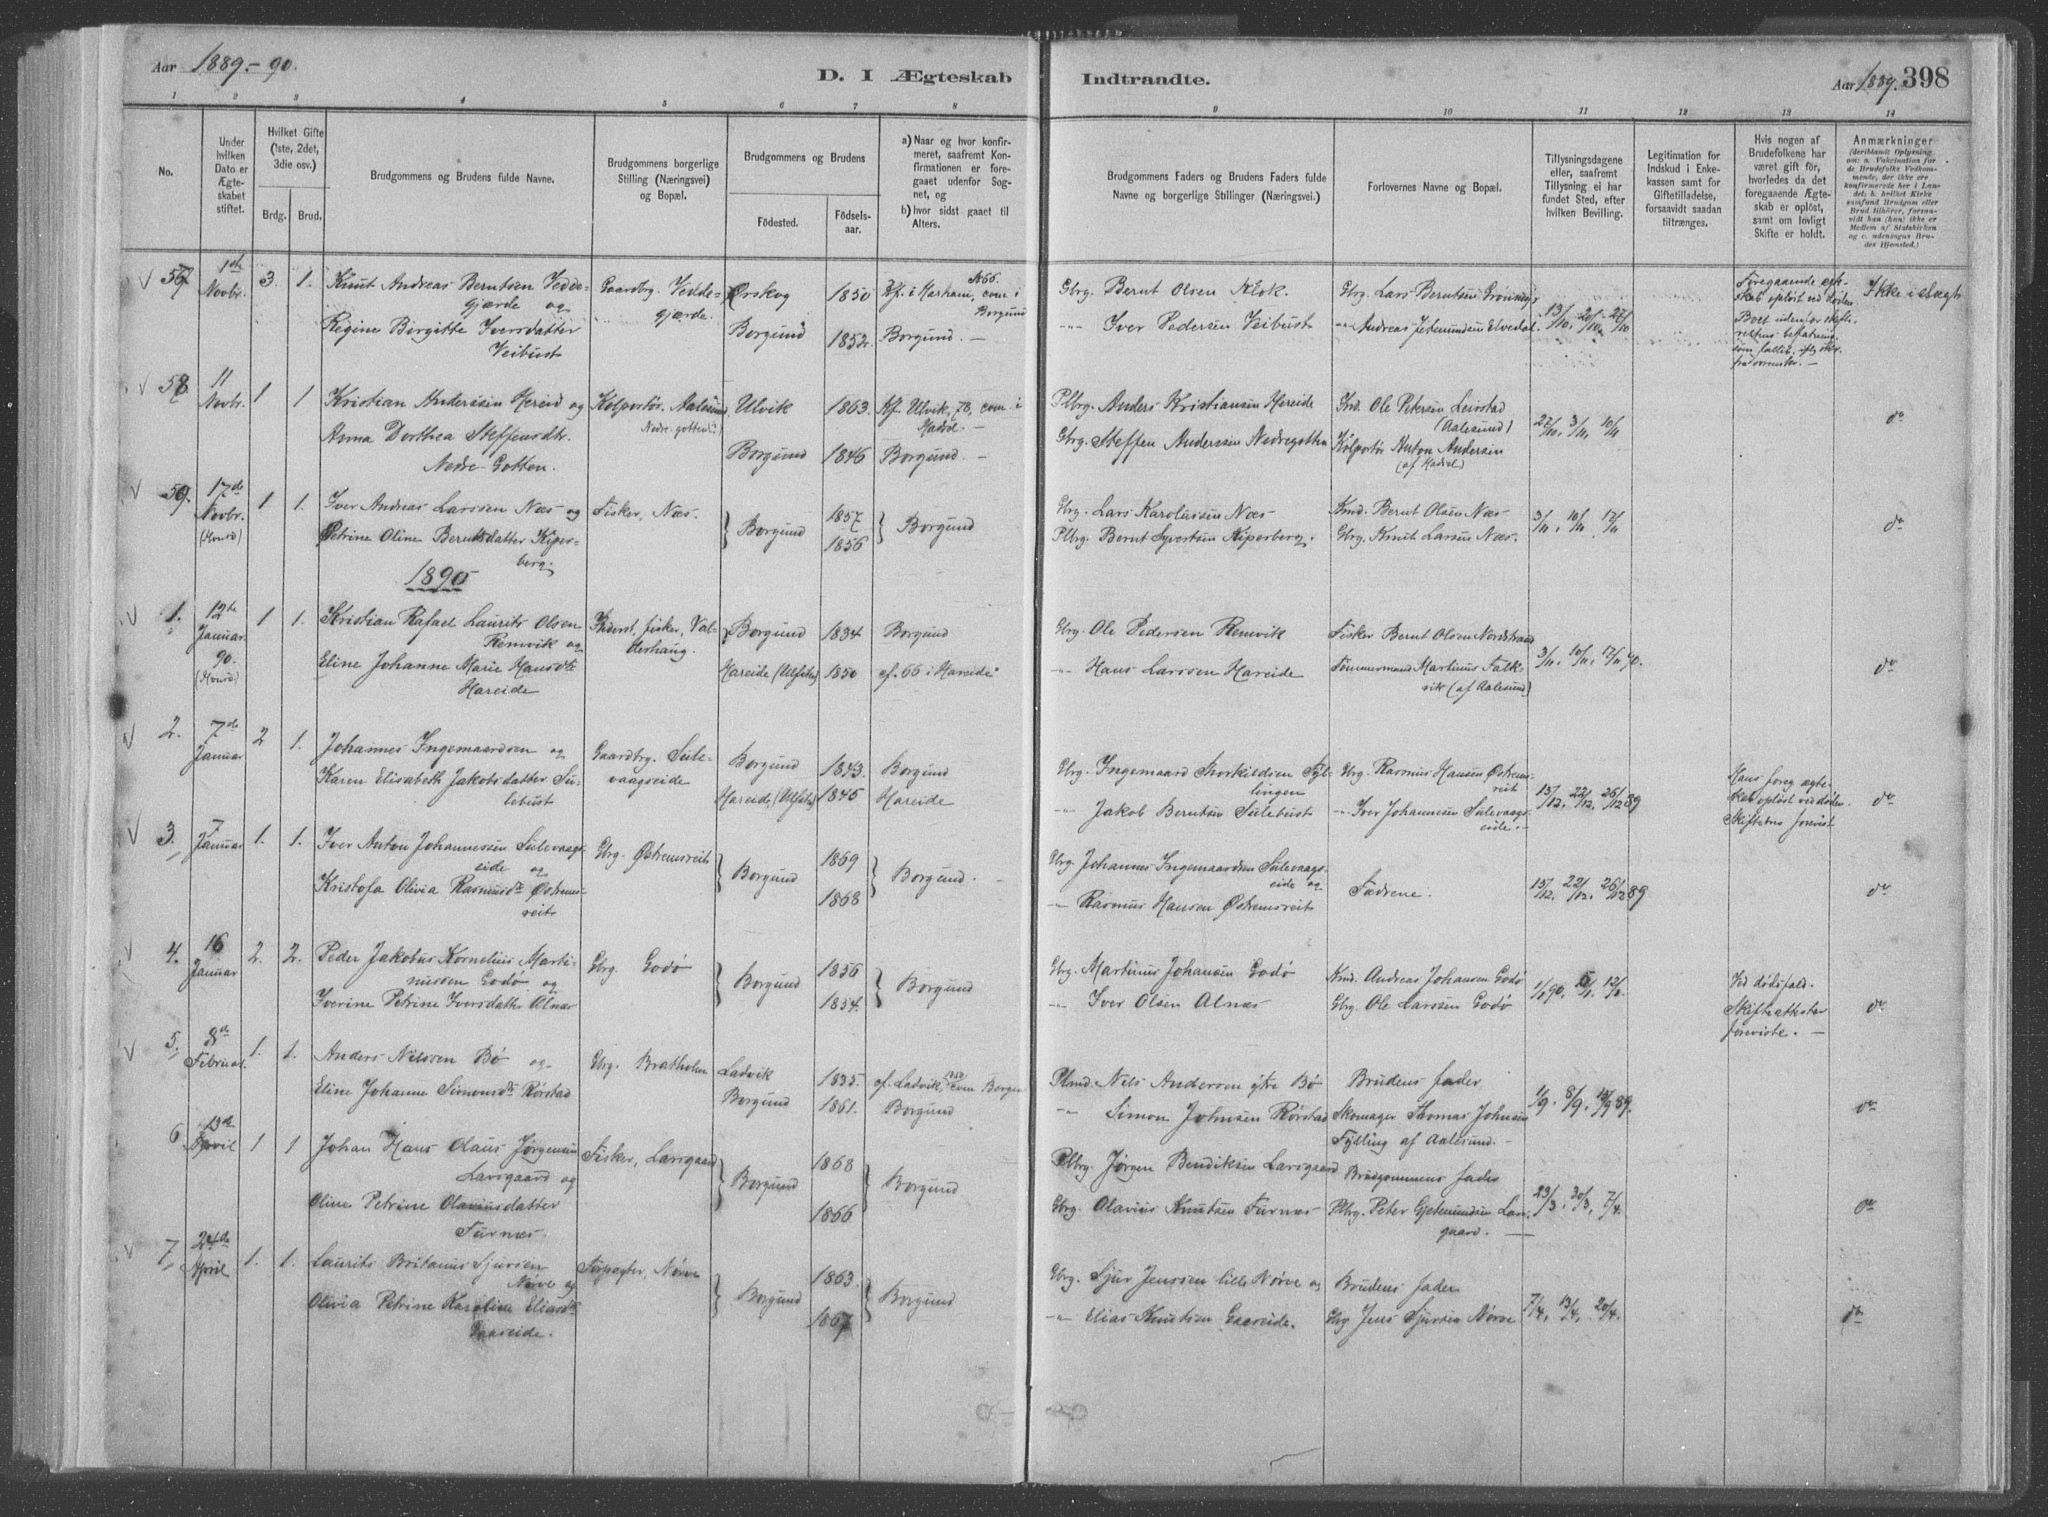 Aar 1889.-90.
D. I Ægteskab Indtraadte.
Aar 1889. 398
1 2 3 4 5 6 7 8 9 10 11 12 13 14
No.
Under hvilken Dato er Ægteskabet stiftet.
Hvilket Gifte (1ste, 2det, 3die osv.)
Brdg. Brud.
Brudgommens og Brudens fulde Navne.
Brudgommens borgerlige Stilling (Næringsvei) og Bopæl.
Brudgommens og Brudens
Fødested. Fødselsaar.
a) Naar og hvor konfirmeret, saafremt Konfirmationen er foregaaet udenfor Sognet, og
b) hvor sidst gaaet til Alters.
Brudgommens Faders og Brudens Faders fulde Navne og borgerlige Stillinger (Næringsvei.)
Forlovernes Navne og Bopæl.
Tillysningsdagene eller, saafremt Tillysning ei har fundet Sted, efter hvilken Bevilling.
Legitimation for Indskud i Enkekassen samt for Giftetilladelse, forsaavidt saadan tiltrænges.
Hvis nogen af Brudefolkene har været gift før, hvorledes da det foregaaende Ægteskab er opløst, samt om lovligt Skifte er holdt.
Anmærkninger
57 1ste Novbr. 3. 1. Knut Andreas Berntsen Veddegjærde og
Gaardbrg. Veddegjærde. Ørskog 1850 Kf. i Harham, 1866. com i Borgund
Gbrg. Bernt Olsen Klok. Gbrg. Lars Berntsen Grønning
13/10, 20/10, 27/10
Foregaaende egteskab opløst ved døden. Ikke i slægt
Regine Birgitte Iversdatter Veibust Borgund 1852. Borgund. -
-"- Iver Pedersen Veibust
58 11 Novbr. 1 1 Kristian Anderssen Hereid og
Kolportør, Aalesund 1863. Ulvik Kf. Ulvik, 78, com. i Hadsel. -
Plbrg. Anders Kristiansen Hereide
27/10, 3/11, 10/11 do
Anna Dorthea Steffensdtr. Nedre-Gotten. Borgund 1846 Borgund. -
Gbrg. Steffen Anderssen Nedregotten Kolportør Anton Andersen (af Hadsel)
59. 17de Novbr. 1 1. Iver Andreas Larssen Næs og
Fisker, Næs. Borgund 1857 Borgund
Gbrg. Lars Karolussen Næs Knd. Bernt Olsen Næs
3/11, 10/11, 17/11 do
Petrine Oline Berntsdatter Kiperberg. 1856
Plbrg. Bernt Syvertsen Kiperberg. Gbrg. Knut Larsen Næs.
1890
1. 12te Januar 90. 1 1. Kristian Rafael Laurits Olsen Remvik og
Borgund 1834 Borgund
Gbrg. Ole Pedersen Remvik Fisker Bernt Olsen Nordstrand
3/11, 10/11, 17/11 do
Eline Johanne Marie Hansdtr Hareide
Hareide (Ulfsten) 1850 cf. 66 i Hareide
-"- Hans Larssen Hareide Tømmermand Martinus Falkvik (af Aalesund)
2. 7de Januar 2 1. Johannes Ingemaardsen og
Gaardbrg. Sulevaagseide Borgund 1843. Borgund
Gbrg. Ingemaard Thorkildsen Fylingen Gbrg. Rasmus Hansen Østremsreit
15/12, 22/12, 26/12 89
Hans foreg ægteskab opløst ved døden. Skifteatts forevist do
Karen Elisabeth Jakobsdatter Sulebust
Hareide, (Ulfsten) 1845 Hareide
-"- Jakob Berntsen Sulebust -"- Iver Johannesen Sulevaagseide. -
3. 7 Januar 1. 1. Iver Anton Johannessen Sulevaagseide og
Gbrg. Østremsreit Borgund 1869 Borgund. -
Gbrg. Johannes Ingemaardsen Sulevaagseide og Fædrene.
15/12, 22/12, 26/12 89 do
Kristofa Olivia Rasmusdtr Østremsreit 1868
-"- Rasmus Hansen Østremsreit
4. 16 Januar 2. 2. Peder Jakobus Kornelius Martinussen Godø og
Gbrg. Godø Borgund 1856 Borgund
Gbrg. Martinus Johansen Godø Knd. Andreas Johansen Godø
1/1 90, 5/1, 12/1
Ved dødsfald. Skifteattester foreviste. - do
Iverine Petrine Iversdatter Alnæs 1854.
-"- Iver Olsen Alnæs Gbrg. Ole Larssen Godø
5. 8de Februar 1. 1. Anders Nilssen Bø og
Gbrg. Bratholm Ladvik 1835. cf. Ladvik, com Bergen
Plmd. Nils Andersen ytre Bø Brudens fader
1/9. 8/9. 15/9 89. do
Eline Johanne Simonsdtr Rørstad Borgund 1861. Borgund
-"- Simon Johnsen Rørstad Skomager Thomas Johnsen Fylling af Aalesund. -
6. 13de April 1 1 Johan Hans Olaus Jørgensen Larsgaard og
Fisker, Larsgaard Borgund 1868 Borgund
Plbrg. Jørgen Bendiksen Larsgaard Brudgommens fader
23/3, 30/3, 7/4. do
Oline Petrine Olaviusdatter Furnæs. 1866
Gbrg. Olavius Knutsen Furnæs Plbrg. Peter Gjetmundsen Larsgaard. -
7. 24de April 1. 1. Laurits Britanus Sjursen Nørve og
Forpagter, Nørve Borgund 1863. Borgund
Gbrg. Sjur Jenssen lille Nørve og Brudens fader
7/4, 13/4, 20/4. do
Olivia Petrine Karoline Eliasdtr Gaaseide. 1867
-"- Elias Knutsen Gaaseide. Gbrg Jens Sjursen Nørve